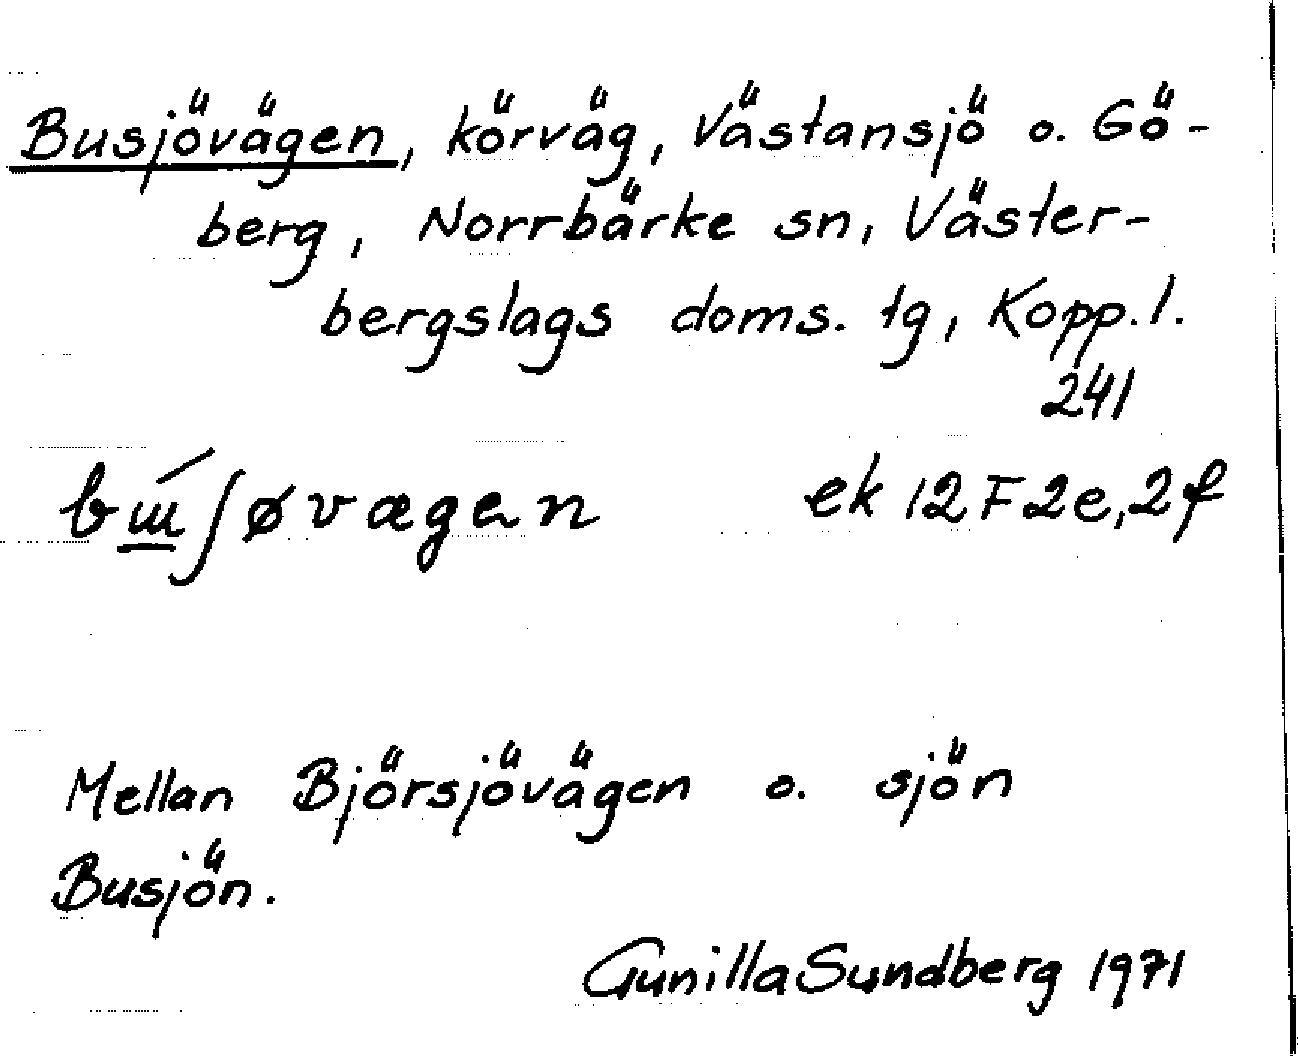 Busjövägen, körväg, Västansjö o. Gö-
berg, Norrbärke sn, Väster-
bergslags doms. tg, Kopp.l.
241
ek 12F2e,2f
Mellan Björsjövägen o. sjön
Busjön.
Gunilla Sundberg 1971